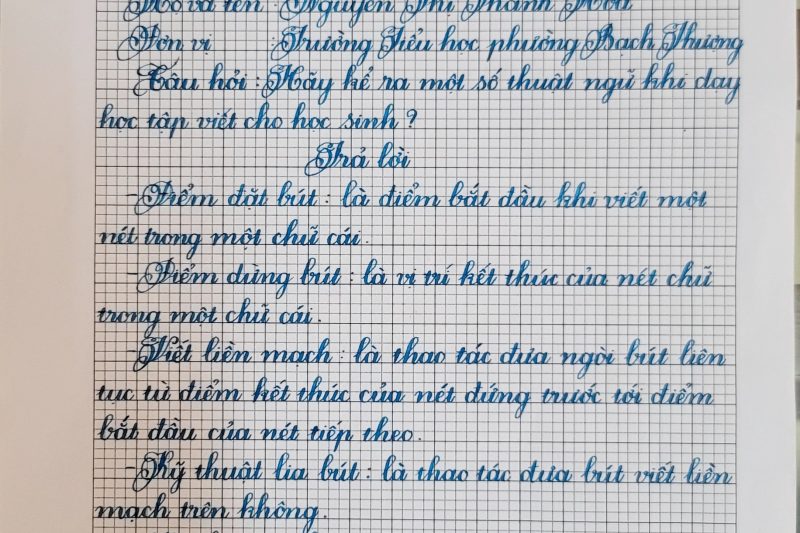 Họ và tên : Nguyễn Thị Thanh Hoa
Đơn vị : Trường Tiểu học phường Bạch Thượng
Câu hỏi : Hãy kể ra một số thuật ngữ khi dạy
học tập viết cho học sinh ?
Trả lời
- Điểm đặt bút : là điểm bắt đầu khi viết một
nét trong một chữ cái.
- Điểm dừng bút : là vị trí kết thúc của nét chữ
trong một chữ cái.
- Viết liền mạch : là thao tác đưa ngòi bút liên
tục từ điểm kết thúc của nét đứng trước tới điểm
bắt đầu của nét tiếp theo.
- Kỹ thuật lia bút : là thao tác đưa bút viết liền
mạch trên không.